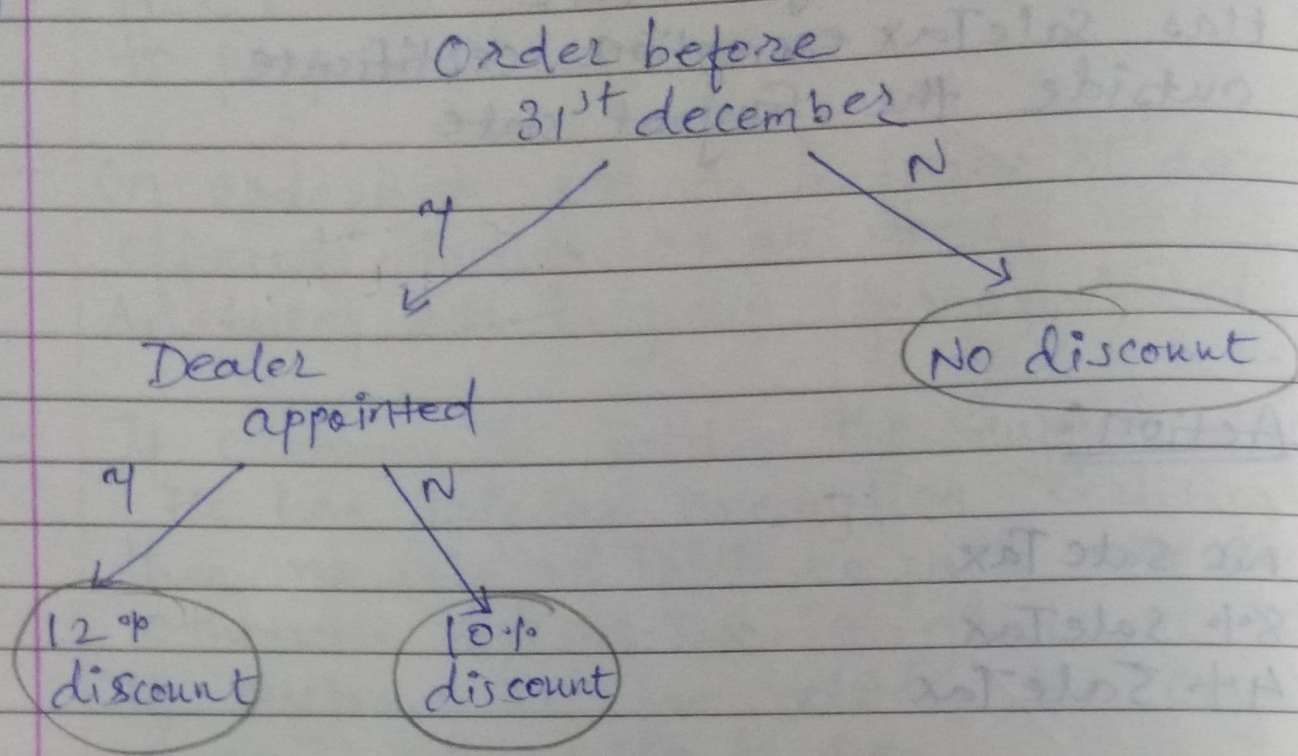 Order before
31st december
Y
N
Dealer
appointed
No discount
Y
N
12%
discount
10%
discount